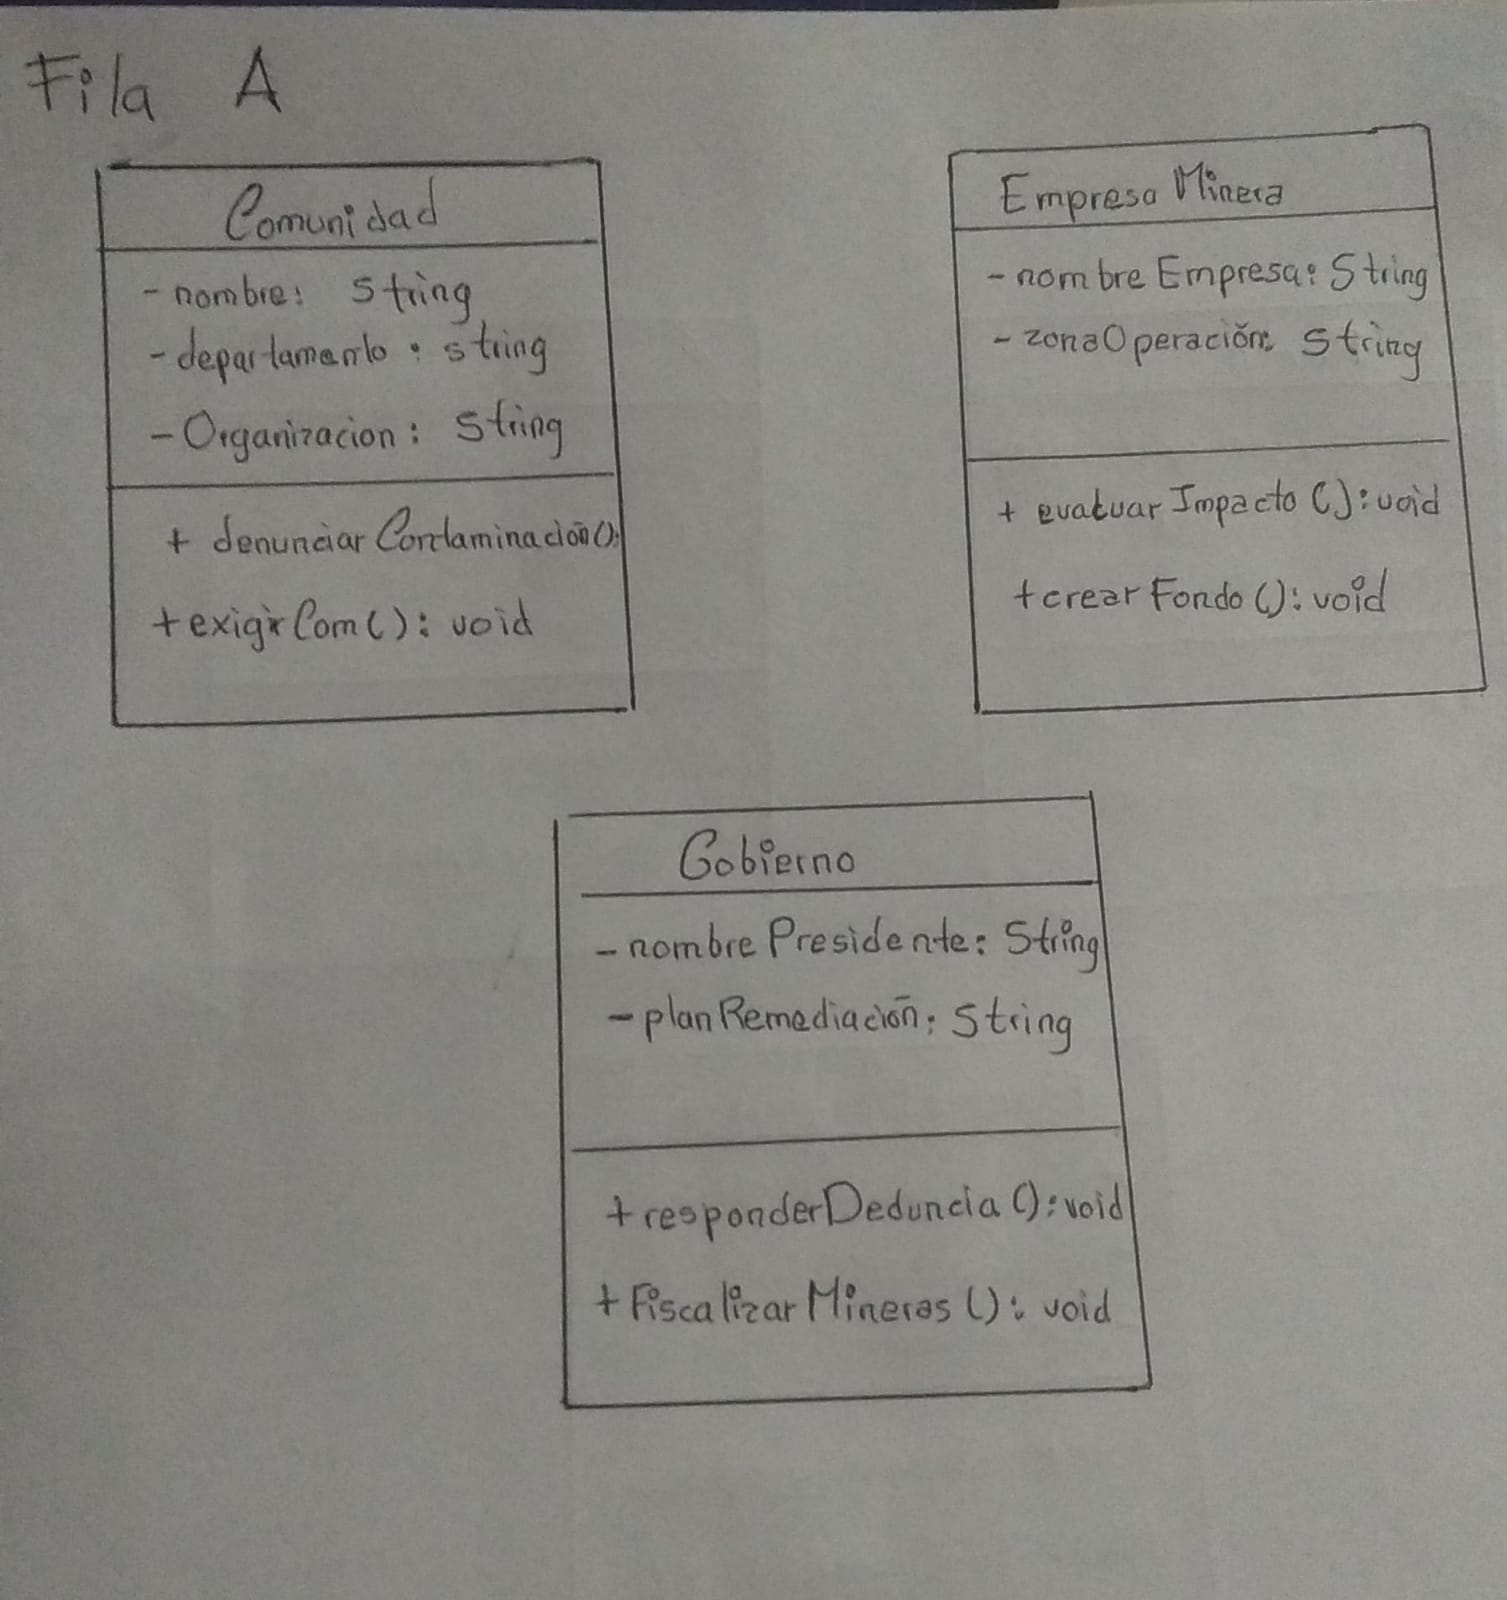 Fila A
Comunidad
- nombre: string
- departamento: string
- Organizacion: String
+ denunciarContaminación():
+ exigirCom(): void
Empresa Minera
- nombreEmpresa: String
- zonaOperación: String
+ evaluarImpacto(): void
+ crearFondo(): void
Gobierno
- nombrePresidente: String
- planRemediación: String
+ responderDeduncia(): void
+ FiscalizarMineras(): void